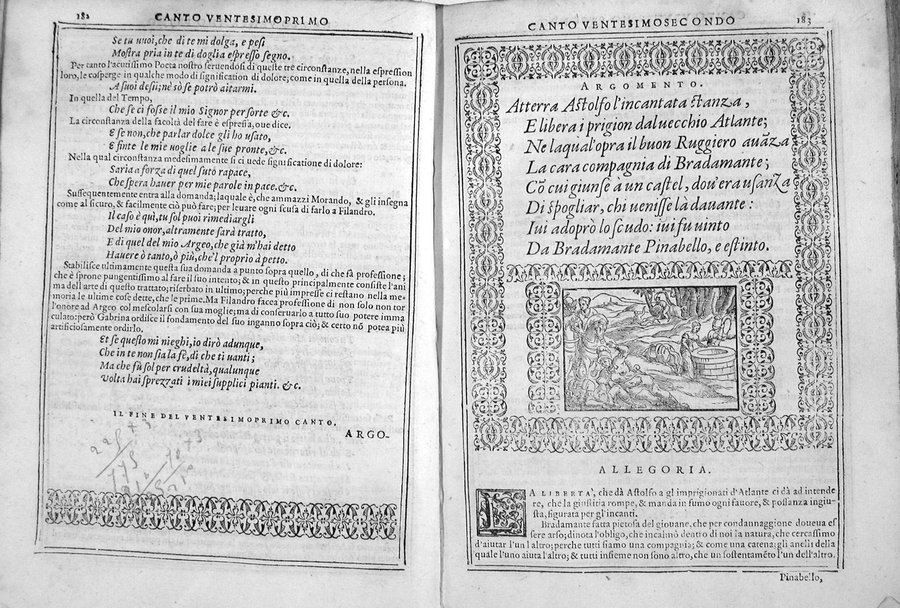 182
CANTO VENTESIMOPRIMO
Se tu uuoi, che di te mi dolga, e pesi
Mostra pria in te di doglia espresso segno.
Per tanto l'acutissimo Poeta nostro seruendosi di queste tre circonstanze, nella espression
loro, le cosperge in qualche modo di signification di dolore; come in quella della persona.
A suoi desii; nè sò se potrò aitarmi.
In quella del Tempo,
Che se ci fosse il mio Signor per sorte &c.
La circonstanza della facoltà del fare è espressa, oue dice.
E se non, che parlar dolce gli ho usato,
E finte le mie uoglie a le sue pronte, &c.
Nella qual circonstanza medesimamente si ci uede significatione di dolore:
Saria a forza di quel suto rapace,
Che spera hauer per mie parole in pace. &c.
Sussequentemente entra alla domanda; laquale è, che ammazzi Morando, & gli insegna
come al sicuro, & facilmente ciò può fare; per leuare ogni scusa di farlo a Filandro.
Il caso è quì, tu sol puoi rimediargli
Del mio onor, altramente sarà tratto,
E di quel del mio Argeo, che già m'hai detto
Hauere ò tanto, ò più, che'l proprio à petto.
Stabilisce ultimamente questa sua domanda a punto sopra quello, di che fà professione;
che è sprone pungentissimo al fare il suo intento; & in questo principalmente consiste l'ani
ma dell arte di questo trattato; riserbato in ultimo; perche più impresse ci restano nella me-
moria le ultime cose dette, che le prime. Ma Filandro facea professione di non solo non tor
l'onore ad Argeo col mescolarsi con sua moglie; ma di conseruarlo a tutto suo potere imma
culato: però Gabrina ordisce il fondamento del suo inganno sopra ciò; & certo nō potea più
artificiosamente ordirlo.
Et se questo mi nieghi, io dirò adunque,
Che in te non sia la fè, di che ti uanti;
Ma che fù sol per crudeltà, qualunque
Volta hai sprezzati i miei supplici pianti. &c.
IL FINE DEL VENTESIMOPRIMO CANTO.
ARGO-
CANTO VENTESIMOSECONDO
183
ARGOMENTO.
Atterra Astolfo l'incantata stanza,
E libera i prigion dal uecchio Atlante;
Ne laqual'opra il buon Ruggiero auāza
La cara compagnia di Bradamante;
Cō cui giunse a un castel, dou'era usanza
Di spogliar, chi uenisse là dauante:
Iui adoprò lo scudo: iui fu uinto
Da Bradamante Pinabello, e estinto.
ALLEGORIA.
LA LIBERTA', che dà Astolfo a gl imprigionati d'Atlante ci dà ad intende
re, che la giustitia rompe, & manda in fumo ogni fauore, & possanza ingiu-
sta, figurata per gl'incanti.
Bradamante fatta pietosa del giouane, che per condannaggione doueua es
sere arso; dinota l'obligo, che incalmò dentro di noi la natura, che cercassimo
d'aiutar l'un l altro; perche tutti siamo una compagnia; & come una catena; gli anelli della
quale l'uno aiuta l'altro; & tutti insieme non sono altro, che un sostentamēto l'un dell'altro.
Pinabello,